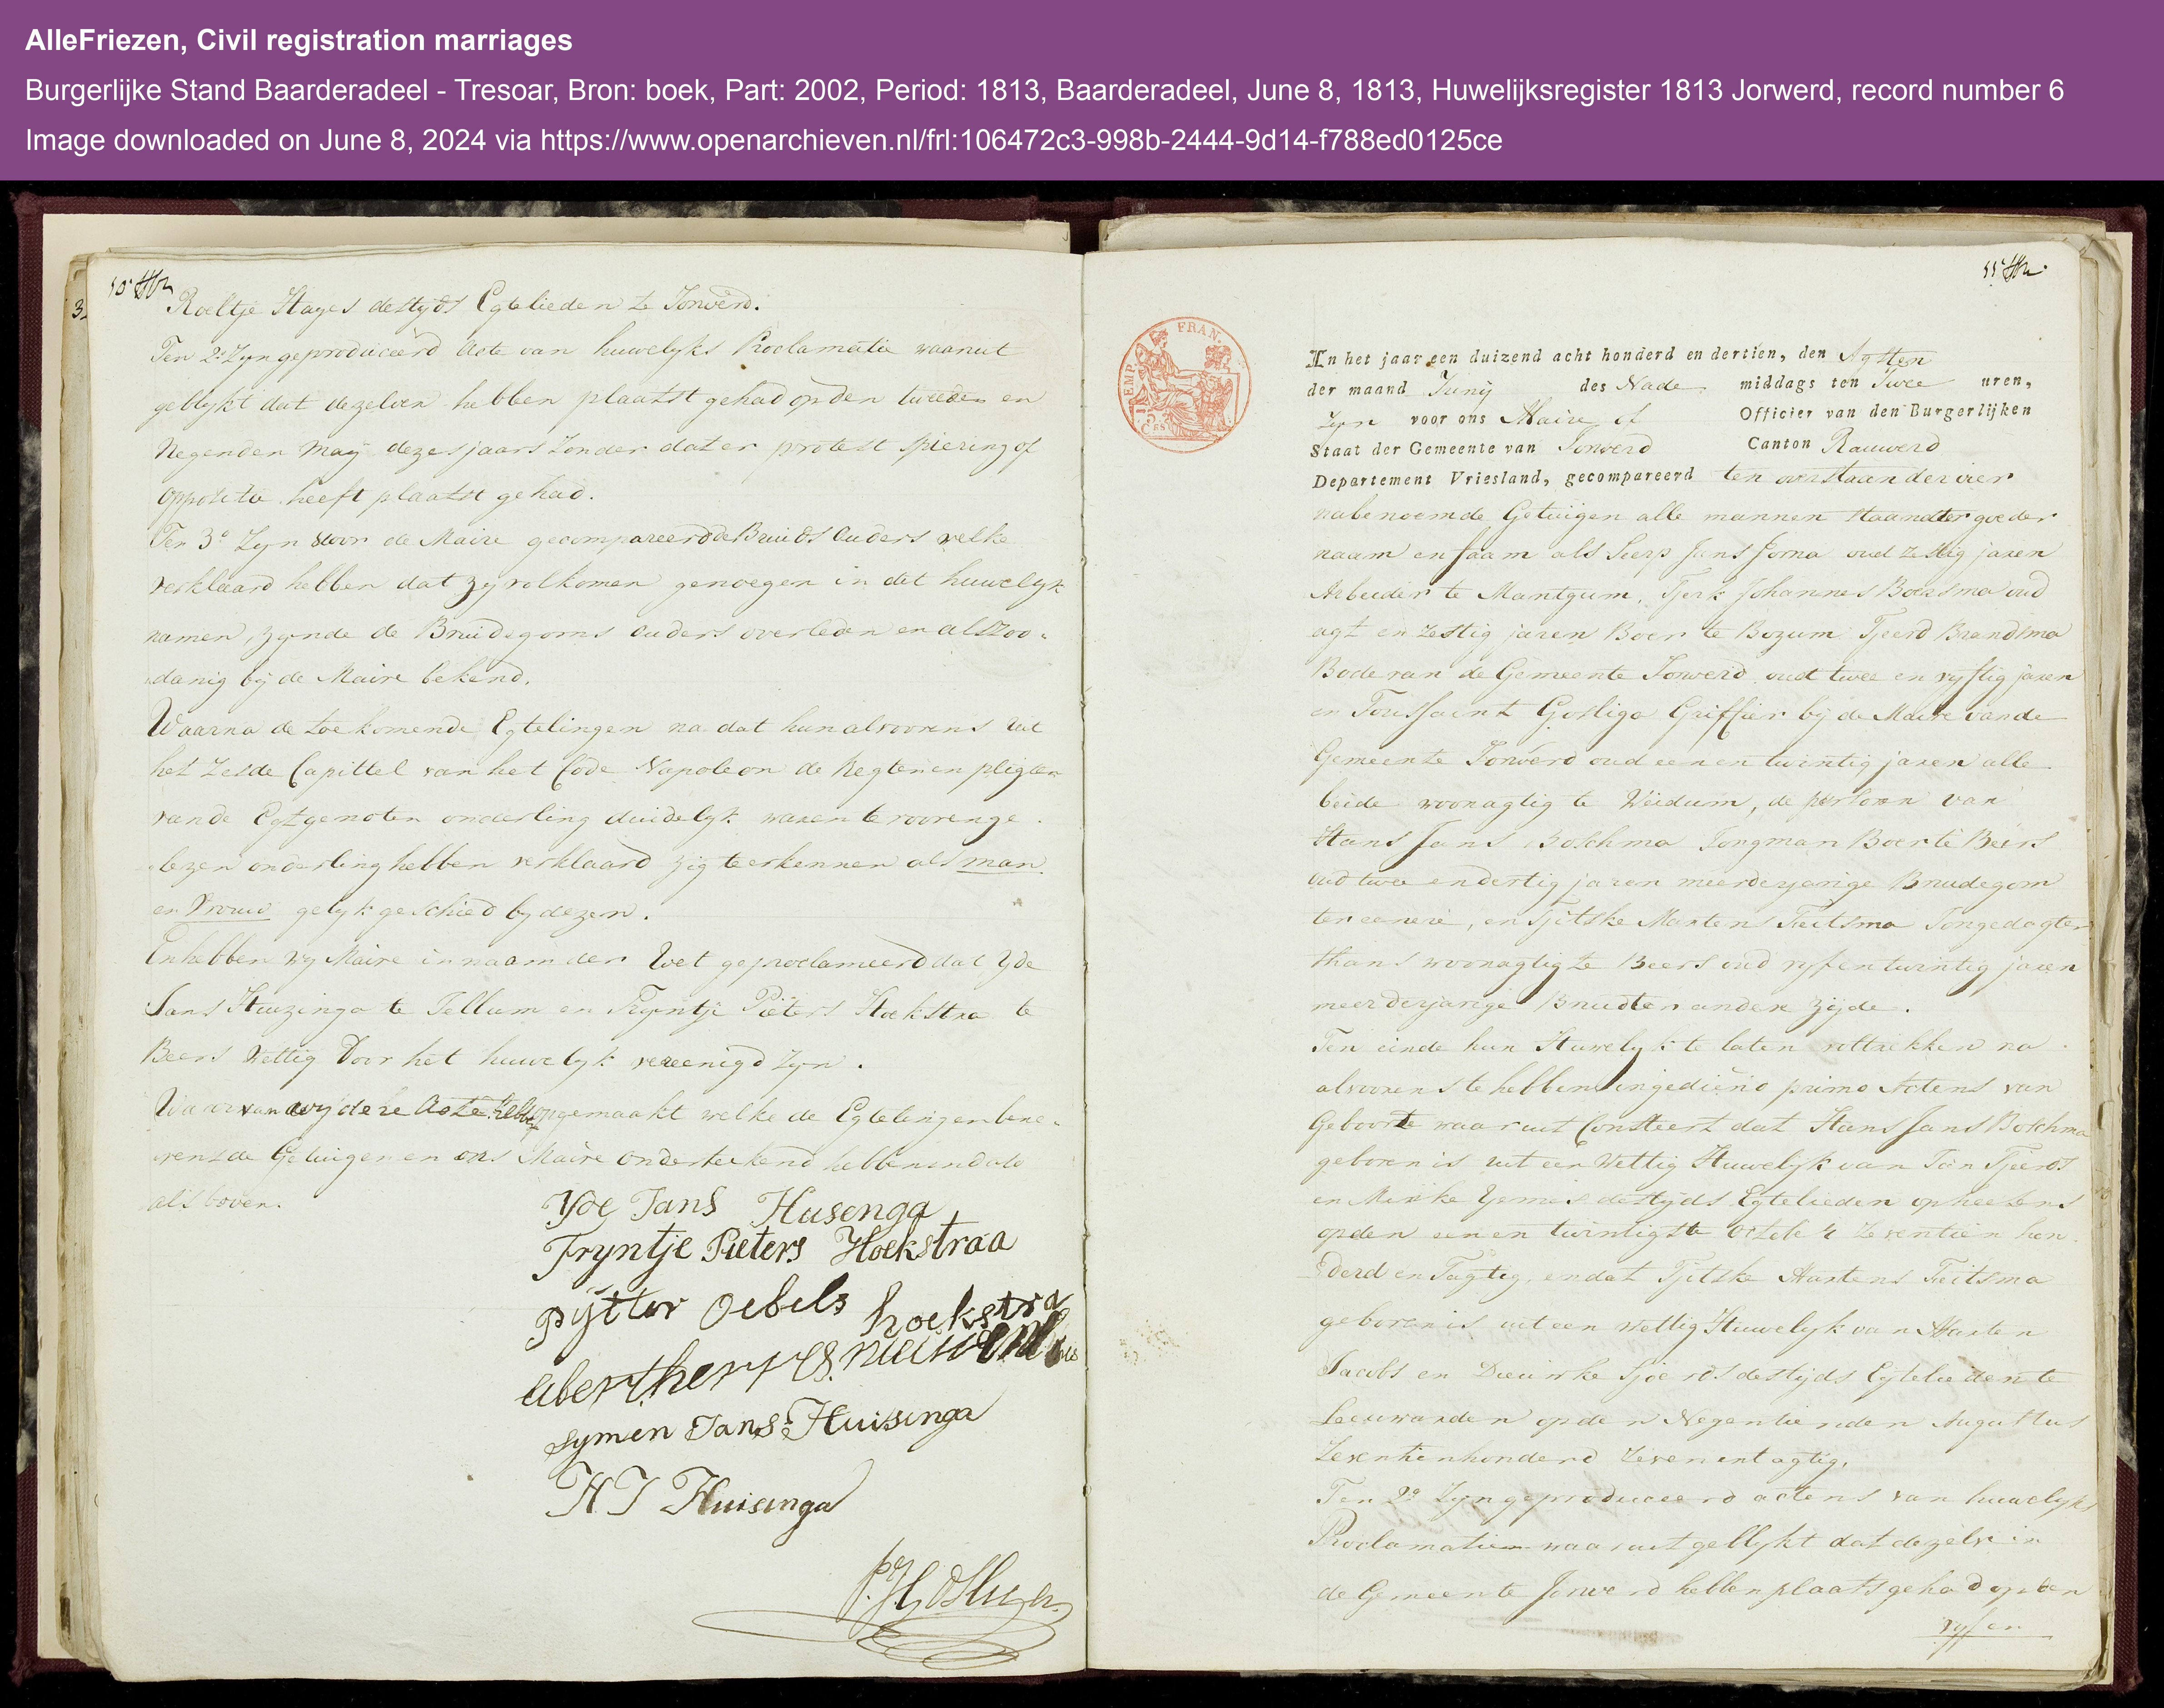 AlleFriezen, Civil registration marriages
Burgerlijke Stand Baarderadeel - Tresoar, Bron: boek, Part: 2002, Period: 1813, Baarderadeel, June 8, 1813, Huwelijksregister 1813 Jorwerd, record number 6
Image downloaded on June 8, 2024 via https://www.openarchieven.nl/frl:106472c3-998b-2444-9d14-f788ed0125ce
3
10
Roeltje Hayes destyds Egtelieden te Jorwerd.
Ten 2o Zyn geproduceerd Acte van huwelyks Proclamatie waaruit
geblykt dat dezelven hebben plaatst gehad op den tweeden en
Negenden May dezes jaars zonder dat er protest spiering of
oppositie heeft plaatst gehad.
Ten 3o Zyn voor de Maire gecompareerd de Bruids Ouders welke
verklaard hebben dat zy volkomen genoegen in dit huwelyk
namen, zynde de Bruidegoms Ouders overleden en alszoo-
danig by de Maire bekend.
Waarna de toekomende Egtelingen na dat hun alvoorens uit
het zesde Capittel van het Code Napoleon de Regten en pligten
van de Egtgenoten onderling duidelyk waren te voorenge-
lezen onderling hebben verklaard zig te erkennen als man
en Vrouw gelyk geschied by dezen.
En hebben wy Maire in naam der Wet geproclameerd dat Yde
Jans Huizinga te Jellum en Tryntje Pieters Hoekstra te
Beers Wettig Door het huwelyk vereenigd Zyn.
Waarvan wy deze Acte hebben opgemaakt welke de Egtelingen bene-
vens de Getuigen en ons Maire ondertekend hebben und ato
als boven.
Yde Jans Husenga
Tryntje Pieters Hoekstraa
pytter oebels hoekstra
Symen Jans Huisinga
H J Huisinga
11
EMP. FRAN.
In het jaar een duizend acht honderd en dertien, den Agtsten
der maand Junij des Nade middags ten Twee uren,
Zyn voor ons Maire of Officier van den Burgerlijken
Staat der Gemeente van Jorwerd Canton Rauwerd
Departement Vriesland, gecompareerd ten overstaan der vier
nabenoemde Getuigen alle mannen staande ter goeder
naam en faam als Seerp Jans Jorna oud zestig jaren
Arbeider te Mantgum, Tjerk Johannes Boersma oud
agt en zestig jaren Boer te Bozum Tjeerd Brandsma
Bode van de Gemeente Jorwerd oud twee en vyftig jaren
en Toussaint Gosliga Griffier by de Maire van de
Gemeente Jorwerd oud een en twintig jaren alle
beide woonagtig te Weidum, de persoon van
Hans Jans Boschma Jongman Boer te Beers
oud twee en dertig jaren meerderjarige Bruidegom
ter eenere, en Tjitske Martens Feitsma Jongedogter
thans woonagtig te Beers oud vyf en twintig jaren
meerderjarige Bruid ter andere Zijde.
Ten einde hun Huwelyk te laten voltrekken na
alvoorens te hebben ingediend primo Actens van
Geboorte waar uit Consteert dat Hans Jans Boschma
geboren is uit een Wettig Huwelyk van Jan Tjeerds
en destyds Egtelieden
op den een en twintigste zeventien hon-
derd en Tagtig, en dat Tjitske Martens Feitsma
geboren is uit een Wettig Huwelyk van Marten
Jacobs en Dieuwke Sjoerds destijds Egtelieden te
Leeuwarden op den Negentienden Augustus
Zeventienhonderd zeven en tagtig.
Ten 2o Zyn geproduceerd actens van huwelyks
Proclamatien waar uit geblykt dat dezelve in
de Gemeente Jorwerd hebben plaats gehad op den
vyf en